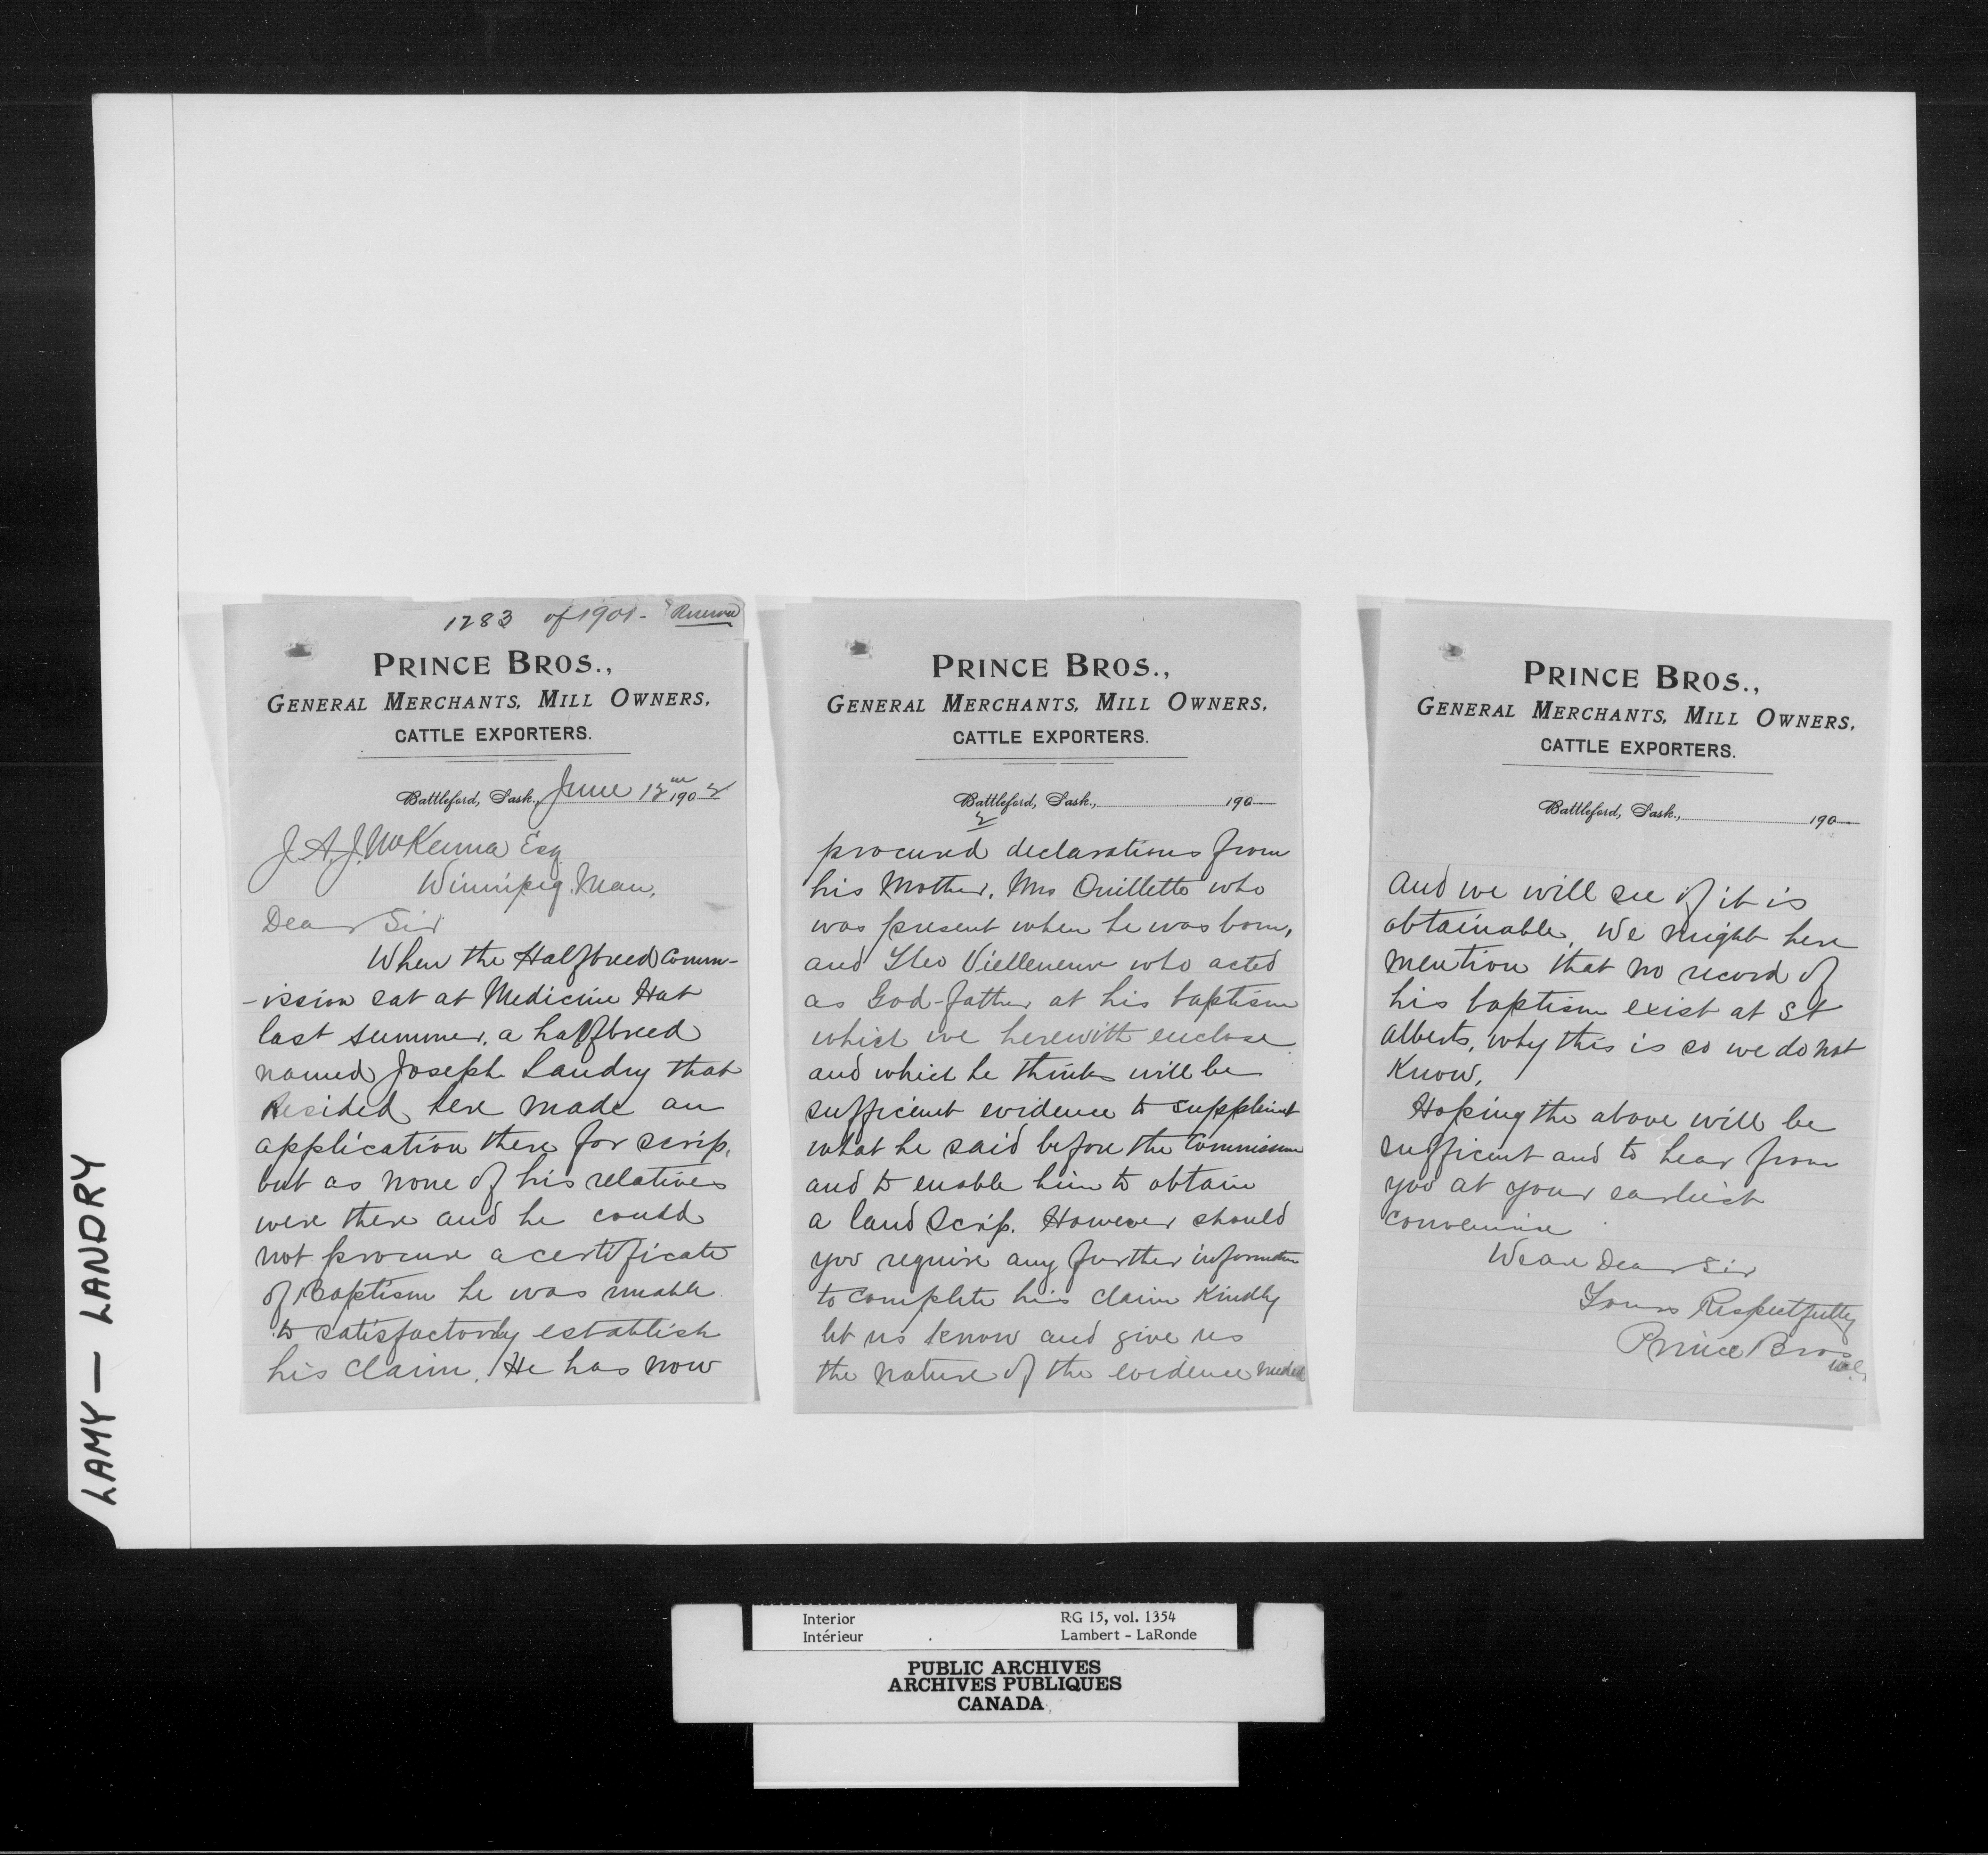 LAMY — LANDRY
1283 of 1901 - Reserve
PRINCE BROS.,
GENERAL MERCHANTS, MILL OWNERS,
CATTLE EXPORTERS.
Battleford, Sask., June 12th 1902
J. A. J. McKenna Esq
Winnipeg. Man.
Dear Sir
When the Halfbreed Comm-
-ission sat at Medicine Hat
last summer. a halfbreed
named Joseph Landry that
Resided here made an
application there for scrip,
but as none of his relatives
were there and he could
not procure a certificate
of Baptism he was unable
to satisfactorily establish
his claim. He has now
PRINCE BROS.,
GENERAL MERCHANTS, MILL OWNERS,
CATTLE EXPORTERS.
Battleford, Sask., 190
2
procured declarations from
his Mother, Mrs Ouillette who
was present when he was born,
and Vielleneuve who acted
as God-father at his baptism
which we herewith enclose
and which he thinks will be
sufficient evidence to supplement
what he said before the Commission
and to enable him to obtain
a land Scrip. However should
you require any further information
to complete his claim Kindly
let us know and give us
the nature of the evidence needed
PRINCE BROS.,
GENERAL MERCHANTS, MILL OWNERS,
CATTLE EXPORTERS.
Battleford, Sask., 190
and we will see if it is
obtainable. We might here
mention that no record of
his baptism exist at St
Alberts, why this is so we do not
Know.
Hoping the above will be
sufficient and to hear from
you at your earliest
convenience
We are Dear Sir
Yours Respectfully
Prince Bros
Interior
Intérieur
RG 15, vol. 1354
Lambert - LaRonde
PUBLIC ARCHIVES
ARCHIVES PUBLIQUES
CANADA